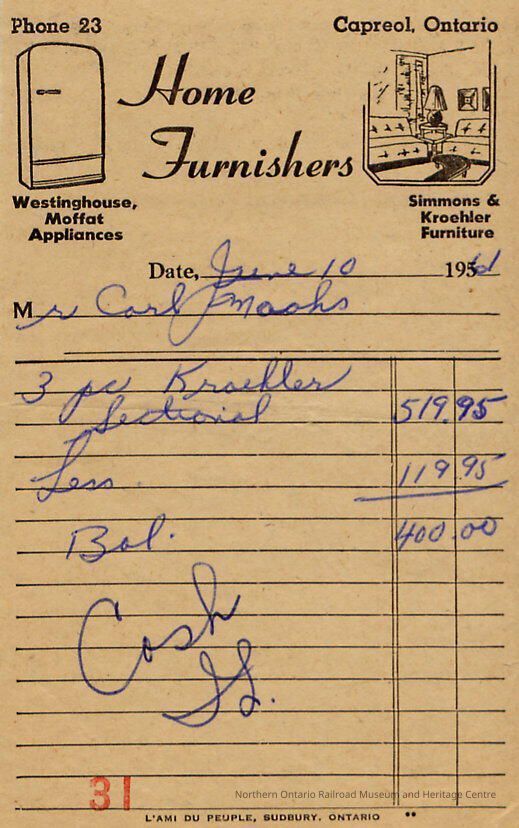 Phone 23
Capreol, Ontario
Home
Furnishers
Westinghouse,
Moffat
Appliances
Simmons &
Kroehler
Furniture
Date, June 10 195
Mr Carl
3 pc Kroehler
Sectional 519.95
Less 119.95
Bal. 400.00
Cash
31
Northern Ontario Railroad Museum and Heritage Centre
L'AMI DU PEUPLE, SUDBURY, ONTARIO